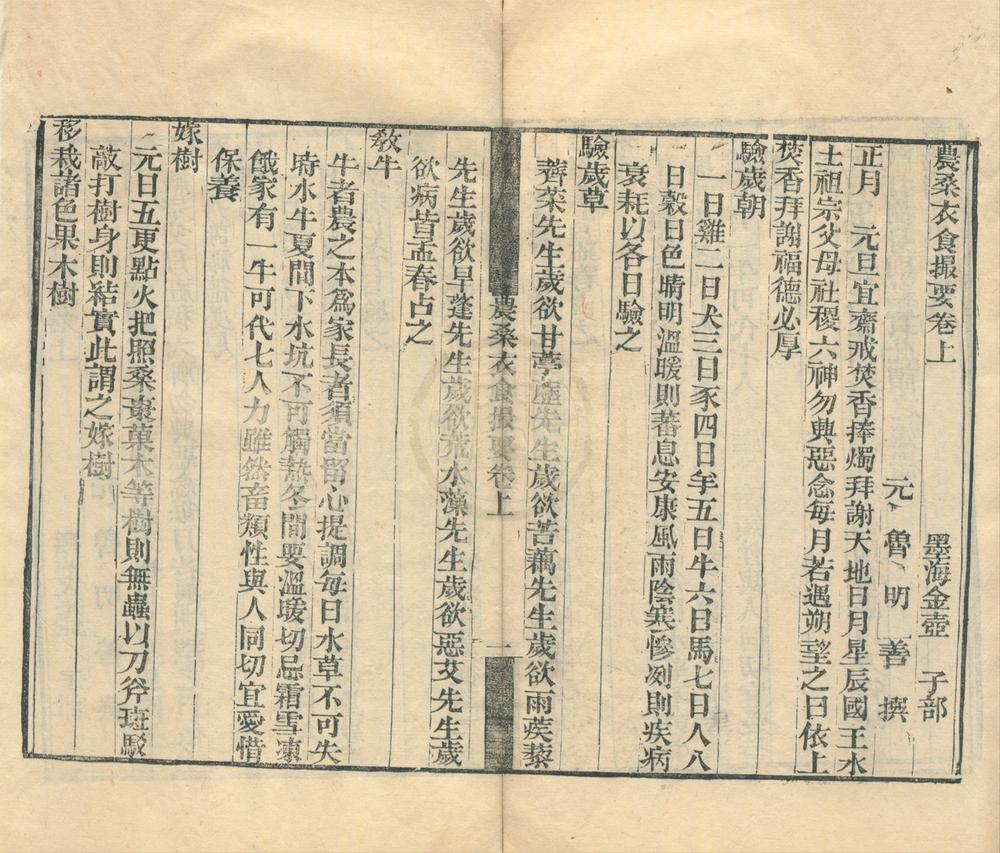 農桑衣食撮要卷上
墨海金壺　子部
元　魯　明　善　撰
正月　元旦宜齋戒焚香捧燭拜謝天地日月星辰國王水
土祖宗父母社稷六神勿興惡念每月若遇朔望之日依上
焚香拜謝福德必厚
驗歲朝
一日雞二日犬三日豕四日羊五日牛六日馬七日人八
日穀日色晴明溫暖則蕃息安康風雨陰寒慘冽則疾病
衰耗以各日驗之
驗歲草
薺菜先生歲欲甘葶藶先生歲欲苦藕先生歲欲雨蒺藜
農桑衣食撮要卷上　一
先生歲欲旱蓬先生歲欲荒水藻先生歲欲惡艾先生歲
欲病皆孟春占之
敎牛
牛者農之本爲家長者須當留心提調每日水草不可失
時水牛夏間下水坑不可觸熱冬間要溫暖切忌霜雪凍
餓家有一牛可代七人力雖然畜類性與人同切宜愛惜
保養
嫁樹
元日五更點火把照桑棗菓木等樹則無蟲以刀斧斑駁
敲打樹身則結實此謂之嫁樹
移栽諸色果木樹